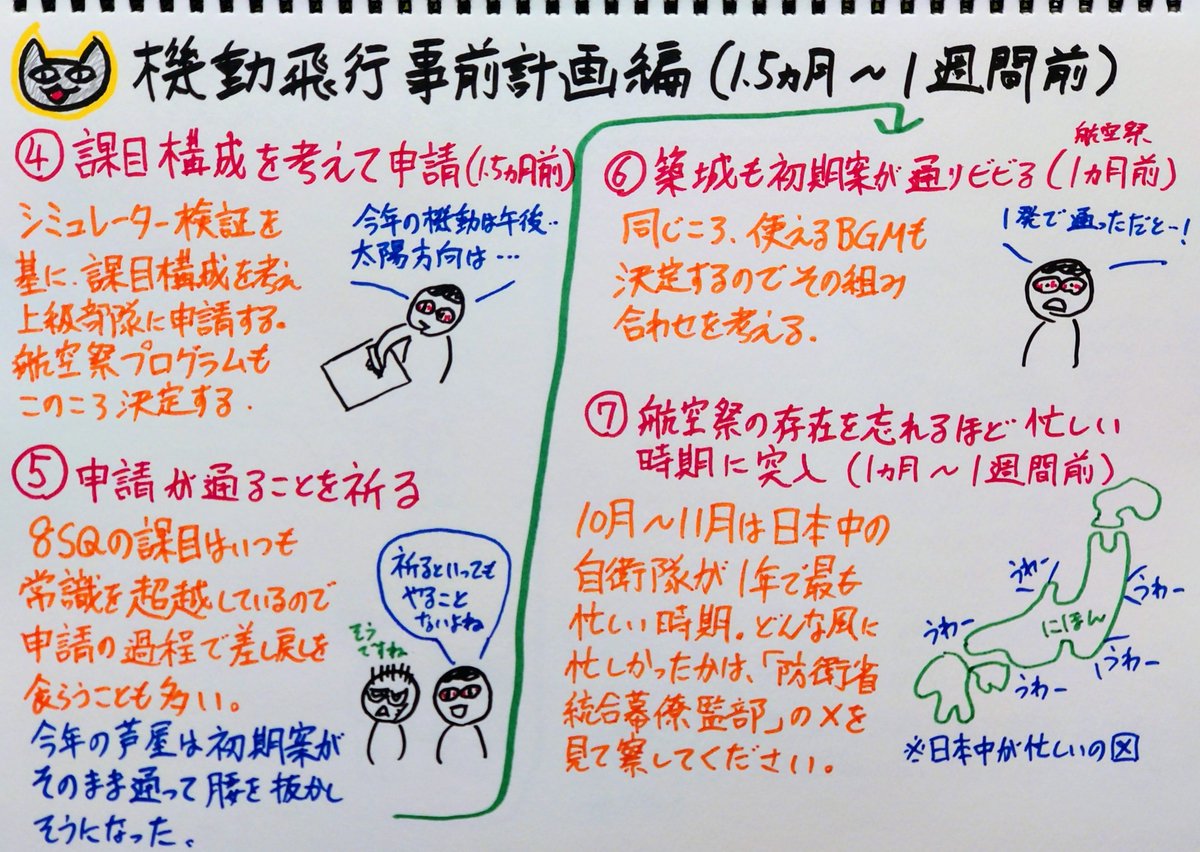 機動飛行 事前計画編(1.5ヵ月～1週間前)
④課目構成を考えて申請(1.5ヵ月前)
シミュレーター検証を
基に、課目構成を考え
上級部隊に申請する。
航空祭プログラムも
このころ決定する.
今年の機動は午後‥
太陽方向は…
⑤申請が通ることを祈る
8SQの課目はいつも
常識を超越しているので
申請の過程で差し戻しを
食らうことも多い。
今年の芦屋は初期案が
そのまま通って腰を抜かし
そうになった。
祈るといっても
やること
ないよね
そう
ですね
航空祭
⑥築城も初期案が通りビビる(1ヵ月前)
同じころ、使えるBGMも
決定するのでその組み
合わせを考える.
1発で通っただとー!
⑦航空祭の存在を忘れるほど忙しい
時期に突入(1ヵ月～1週間前)
10月～11月は日本中の
自衛隊が1年で最も
忙しい時期。どんな風に
忙しかったかは、「防衛省
統合幕僚監部」のXを
見て察してください。
うわー
うわー
うわー
うわー
うわー
にほん
※日本中が忙しいの図